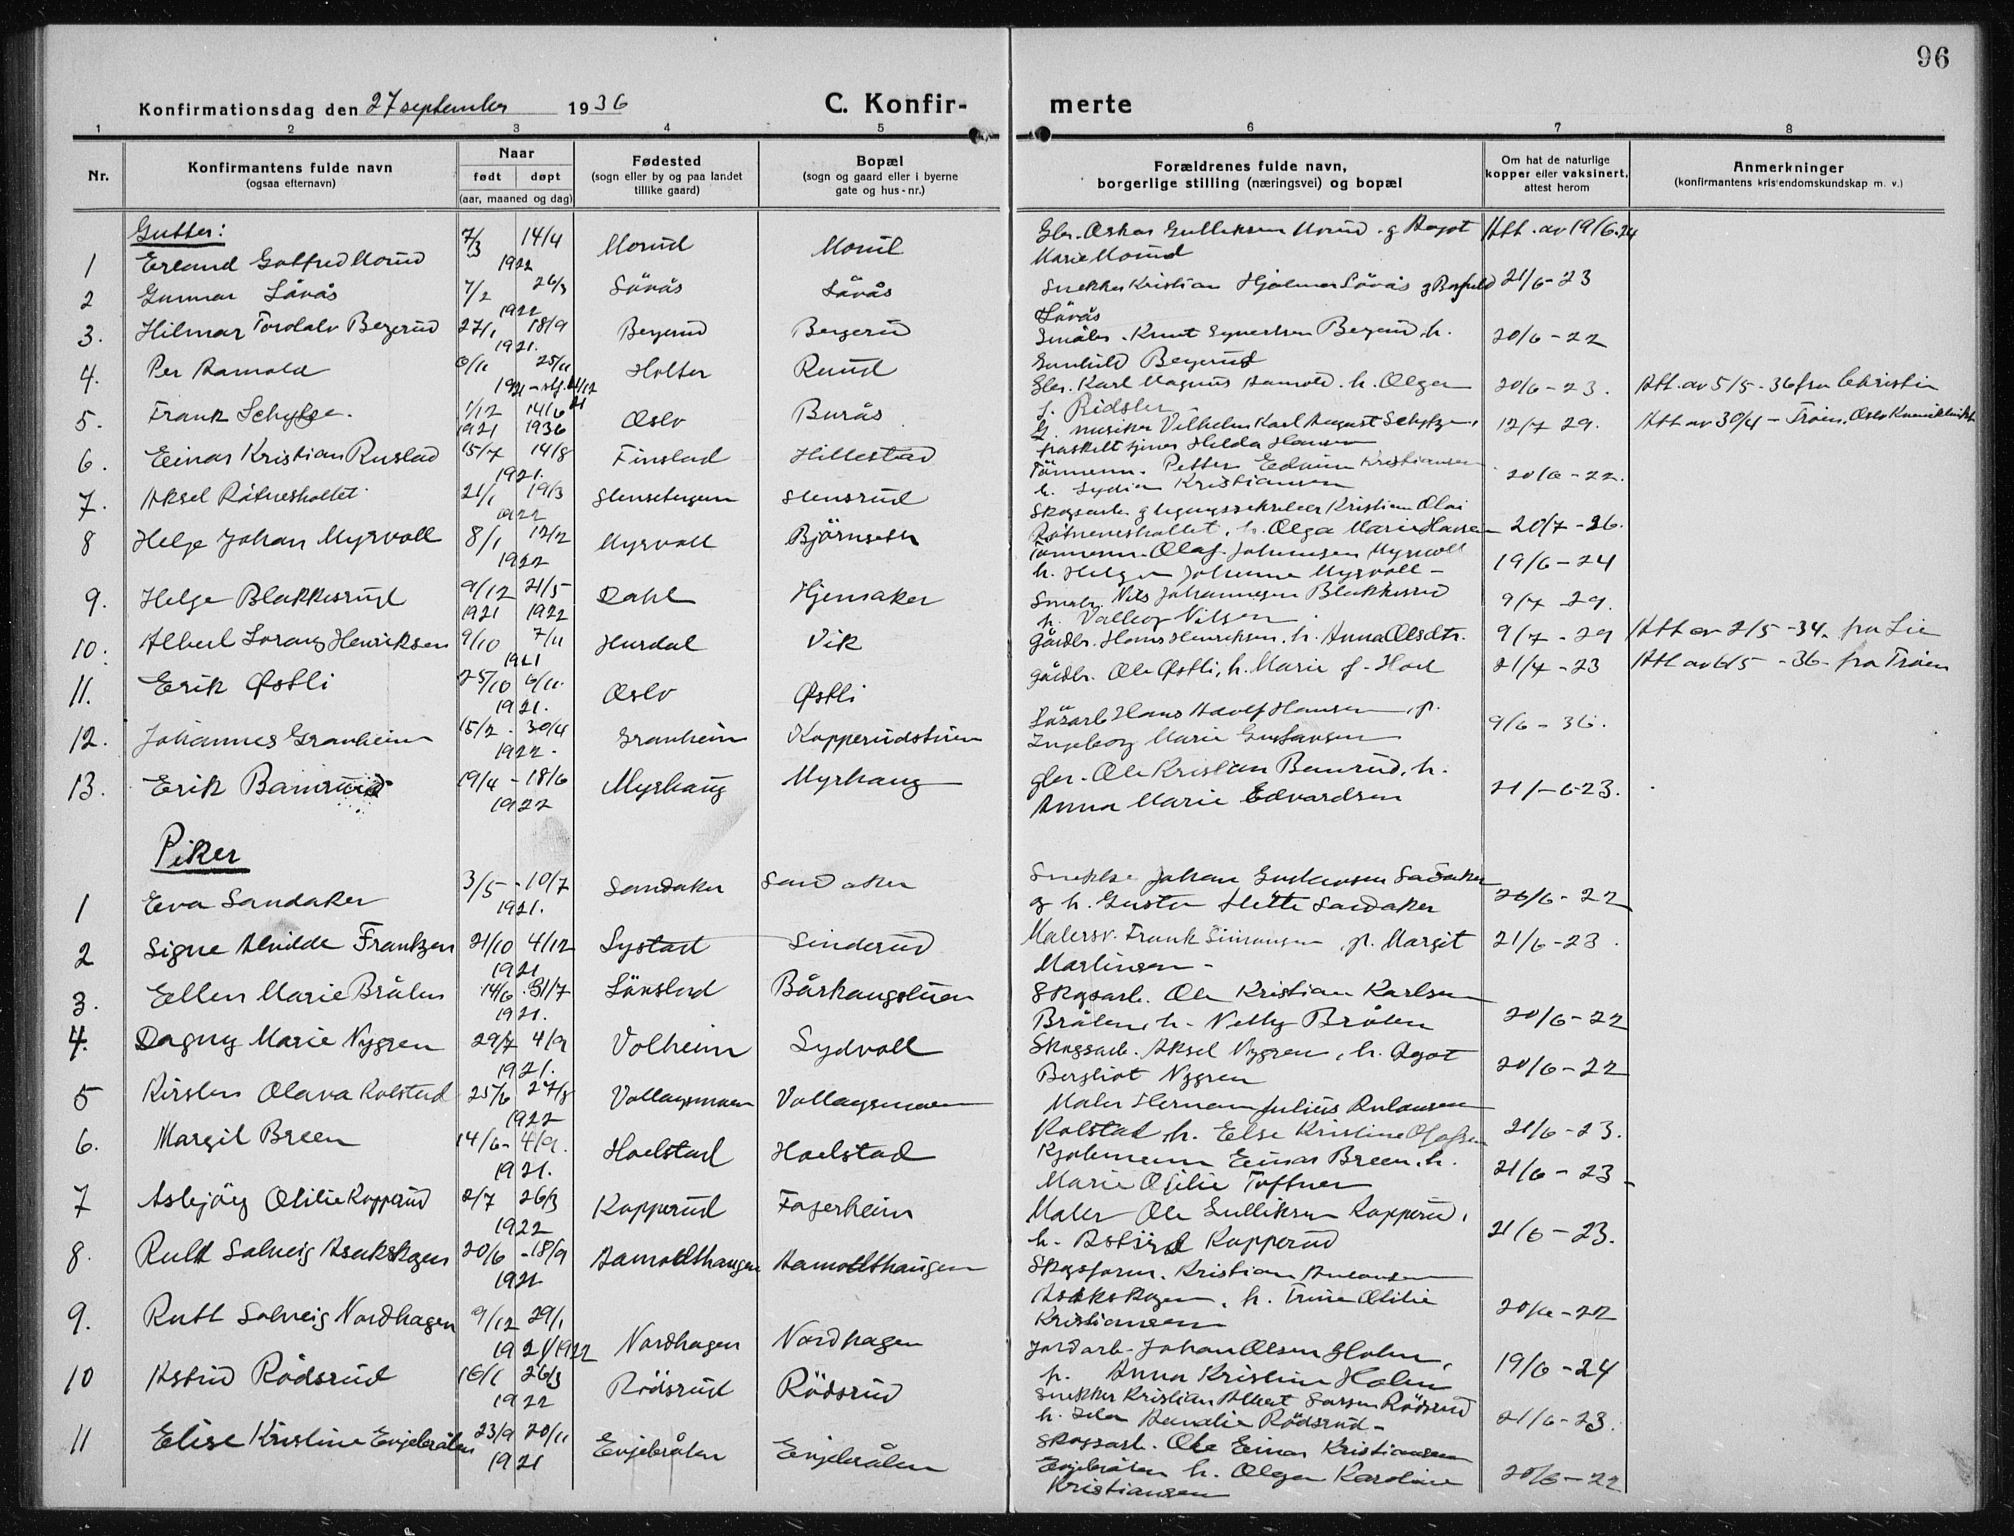 96
Konfirmationsdag den 27 september 1936 C. Konfir- merte
1 2 3 4 5 6 7 8
Nr. Konfirmantens fulde navn (ogsaa efternavn) Naar født døpt (aar, maaned og dag) Fødested (sogn eller by og paa landet tillike gaard) Bopæl (sogn og gaard eller i byerne gate og hus-nr.) Forældrenes fulde navn, borgerlige stilling (næringsvei) og bopæl Om hat de naturlige kopper eller vaksinert, attest herom Anmerkninger (konfirmantens kristendomskundskap m. v.)
Gutter:
1 Erland Gotfred Morud 7/3 14/4 1922 Morud Morud Gbr. Oskar Gulliksen Morud og Aagot Att. av 19/6-24
Marie Morud
2 Gunnar Låvås 7/2 26/3 1922 Låvås Låvås Snekker Kristian Hjalmar Låvås og 21/6-23
Låvås
3. Hilmar Tordalv Bergerud 27/1 18/9 1921. Bergerud Bergerud Småbr. Knut Syvertsen Bergerud, h. 20/6-22
Gunhild Bergerud
4. Per Aamold 25/11 1921 Holter Ruud Gbr. Karl Magnus Aamold, h. Olga 20/6-23. Att av 5/5-36 fra
f.
5. Frank 1/12 1921 14/6 1936 Oslo Burås musiker Vilhelm Karl August 12/7 29. Att av 30/4 - Oslo
fraskilt Hilda Hansen
6. Einar Kristian Rustad 15/7 14/8 1921. Finstad Hillestad Tömmerm. Petter Edvin Kristiansen 20/6-22.
h. Lydia Kristiansen
7. Aksel Råtnesholtet 21/1 19/3 1922 Stensrud Skogsarb. og Kristian Olai
Råtnesholtet, h. Olga Marie Hansen 20/7-26.
8 Helge Johan Myrvoll 8/1 12/2 1922 Myrvoll Björnseth Tömmerm. Olaf Johansen Myrvoll
h. Helga Johanne Myrvoll - 19/6-24
9. Helge Blakkesrud 9/12 1921 21/5 1922 Dahl Hjemaker Småbr. Nils Johannesen Blakkesrud 9/7-29.
h. Valborg Nilsen
10. Albert Lorang Henriksen 9/10 7/11 1921 Hurdal Vik Gårdbr. Hans Henriksen, h. Anna Olsdtr. 9/7-29 Att av 2/5-34. fra Lie
11. Erik Østli 25/10 6/11. 1921. Oslo Østli Gårdbr. Ole Østli, h. Marie f. 21/7-23 Att av 6/5-36 fra Trøien
12. Johannes Granheim 15/2. 30/4 1922. Granheim Kopperudstuen Hans Adolf Hansen, h. 9/6-36.
Ingeborg Marie Gustavsen
13. Erik Bamrud 19/4-18/6 1922 Myrhaug Myrhaug gbr. Ole Kristian Bamrud, h.
Anna Marie Edvardsen 21/-6-23.
Piker
1 Eva Sandaker 3/5-10/7 1921. Sandaker Sandaker Snekker Johan Gustavsen Sandaker
og h. Gusta Sandaker 20/6-22
2 Signe Alvilde Frantzen 21/10 4/12 1921 Lystad Sinderud Malersv. Frank Simonsen, h. Margit 21/6-23.
Martinsen -
3. Ellen Marie Bråten 14/6. 31/7 1921. Lönstad Bårhaugstuen Skogsarb. Ole Kristian Karlsen
Bråten, h. Nelly Bråten 20/6-22
4. Dagny Marie Nygren 29/7 4/9 1921. Volheim Sydvoll Skogsarb. Aksel Nygren, h. Agot
Bergliot Nygren 20/6-22
5 Kirsten Olava Kolstad 25/6 27/8 1922 Vollaugsmoen Vollaugsmoen Maler Herman Julius
Kolstad, h. Else Kristine Olafsen 21/6-23.
6. Margit Breen 14/6-4/9. 1921. Hoelstad Hoelstad Einar Breen, h.
Marie Otilie Toftner 21/6-23-
7 Asbjörg Otilie Kopperud 2/7 26/3 1922 Kopperud Fagerheim Maler Ole Gulliksen Kopperud,
h. Astrid Kopperud 21/6-23.
8. Ruth Solveig Asakskogen 20/6-18/9 1921 Aamodthaugen Aamodthaugen Skogsform. Kristian
Asakskogen, h. Trine Otilie
Kristiansen 20/6-22
9. Ruth Solveig Nordhagen 9/12 29/1 1921/1922 Nordhagen Nordhagen Jordarb. Johan Olsen Holm,
h. Anna Kristine Holm 19/6-24
10 Astrid Rödsrud 16/1 26/3 1922 Rödsrud Rödsrud Snekker Kristian Albert Larsen Rödsrud
h. Amalie Rödsrud - 21/6-23.
11 Elise Kristine Engebråten 23/9 20/11 1921 Engebråten Engebråten Skogsarb. Ole Einar Kristiansen
Engebråten h. Olga Karoline 20/6-22
Kristiansen